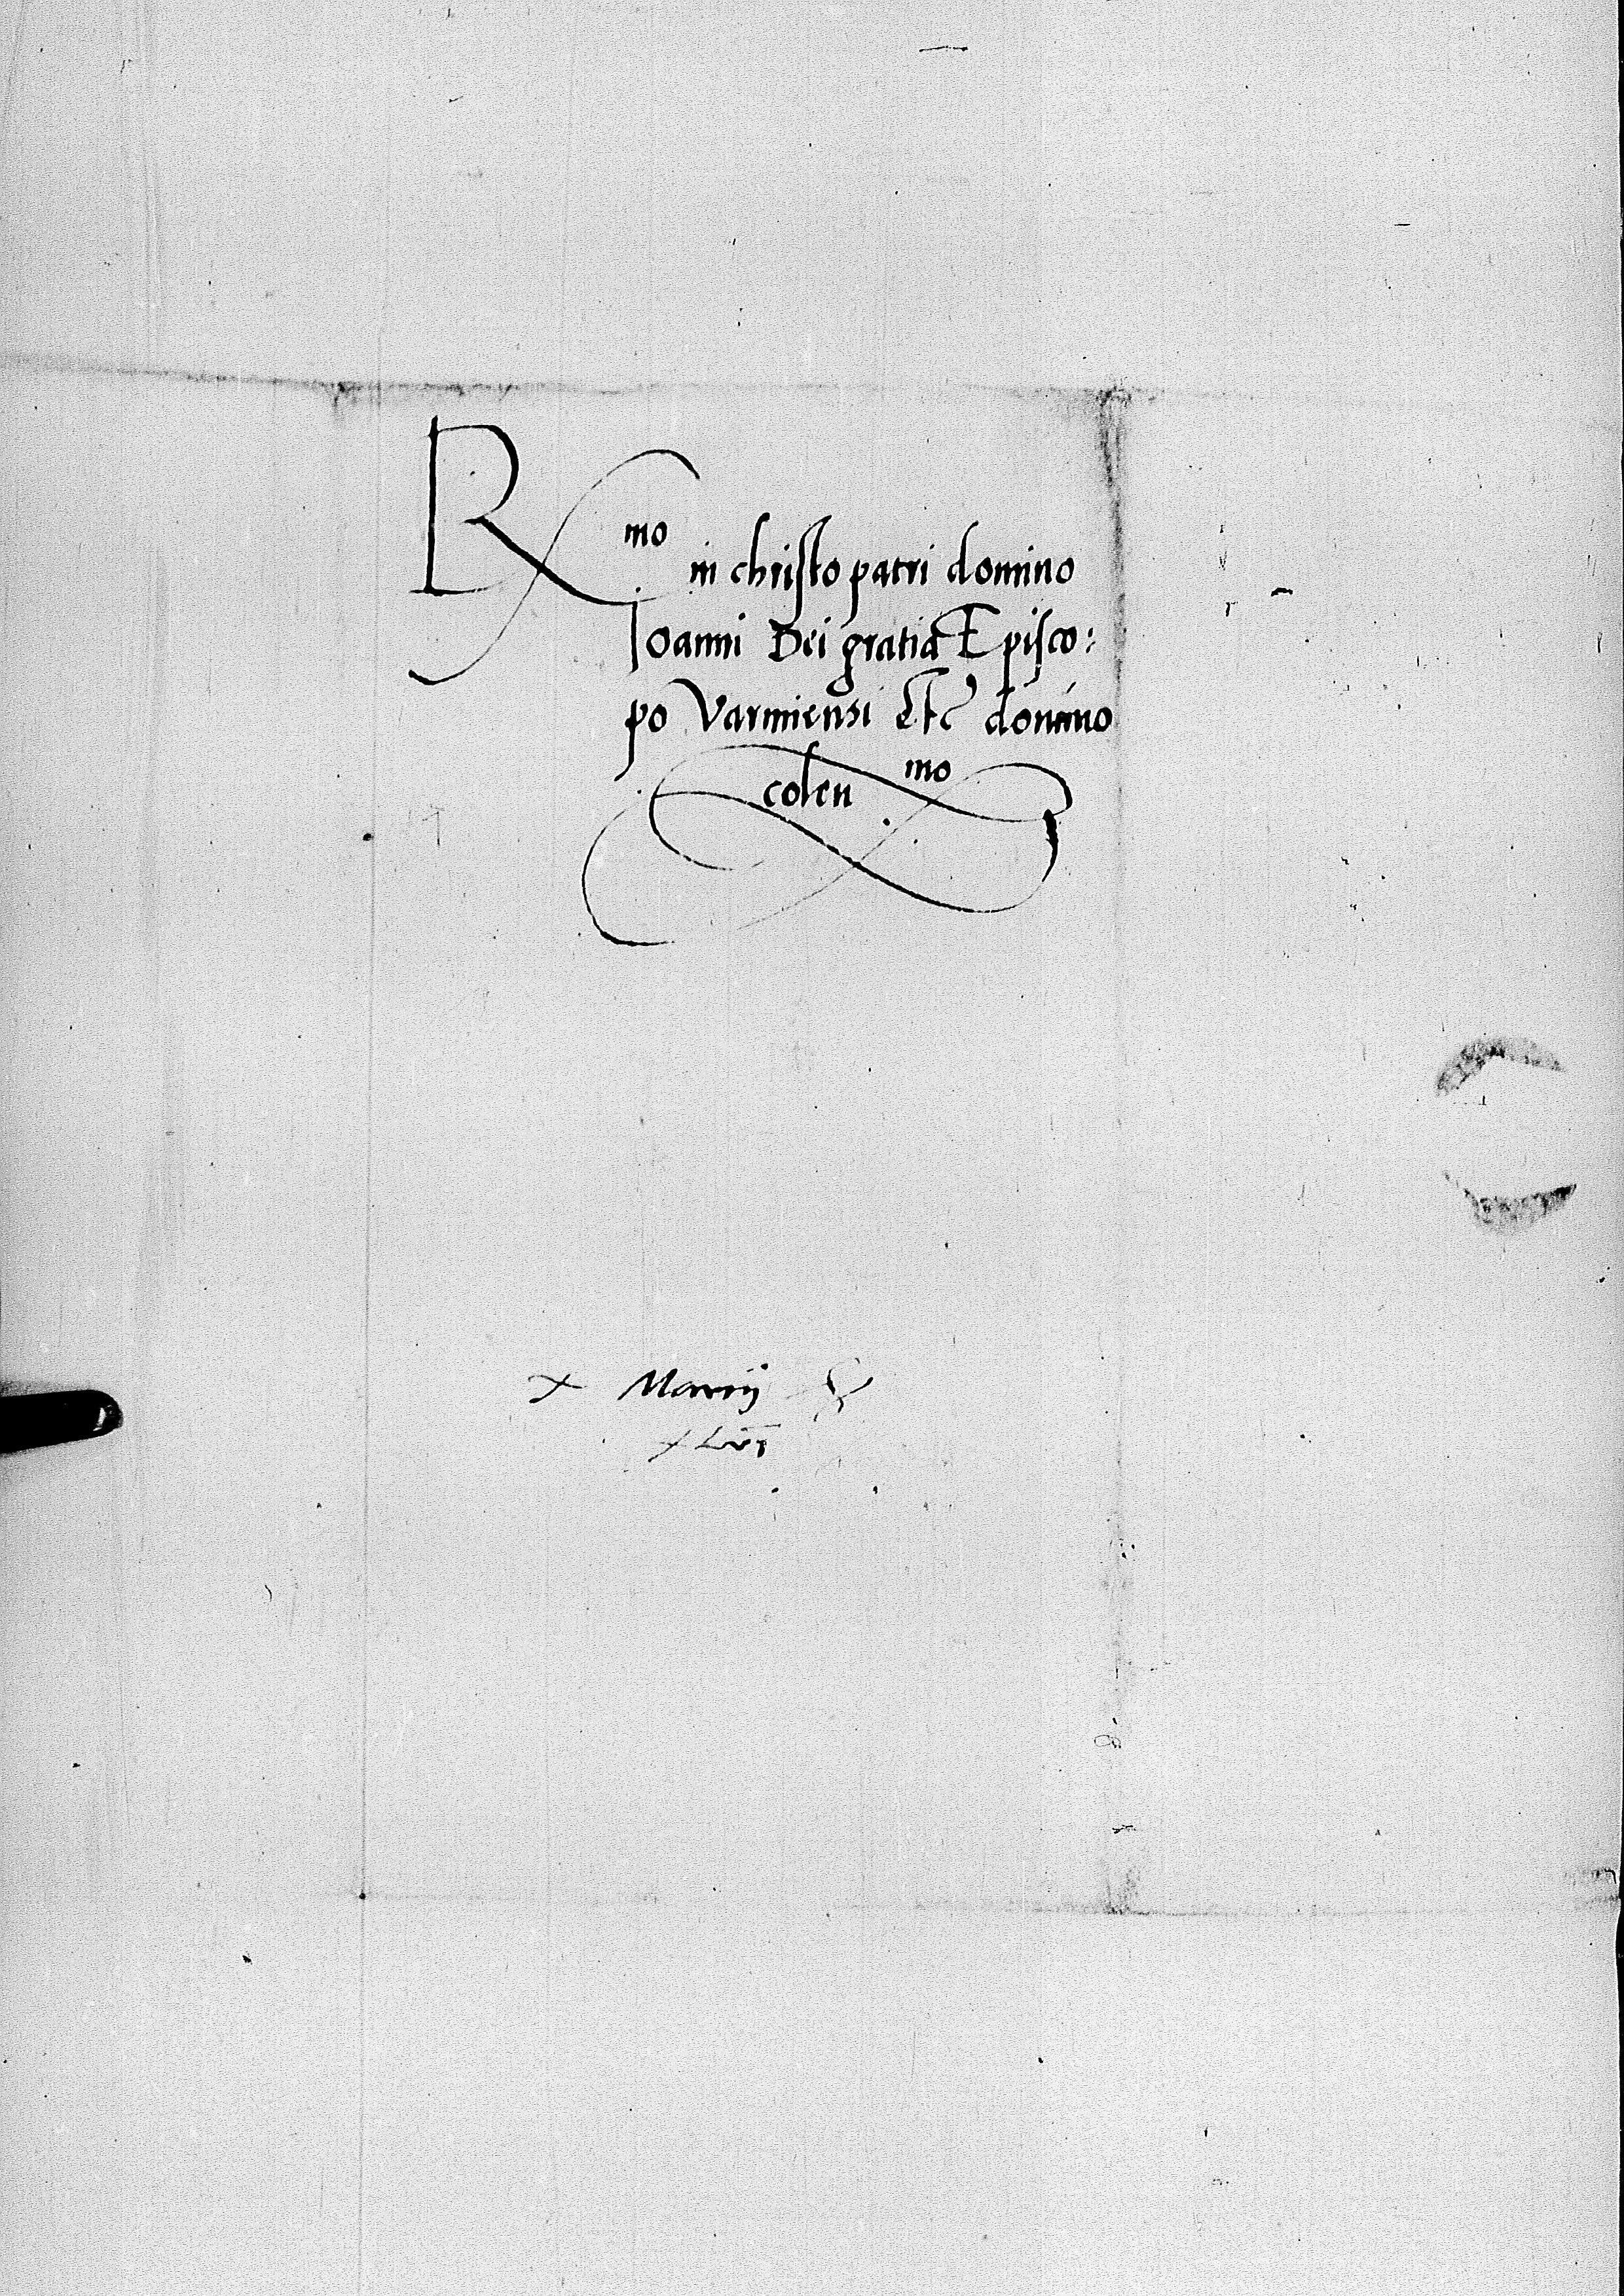 Rmo in christo patri domino
Ioanni Dei gratia Episco:
po Varmiensi Etc domino
colenmo
x Marcij